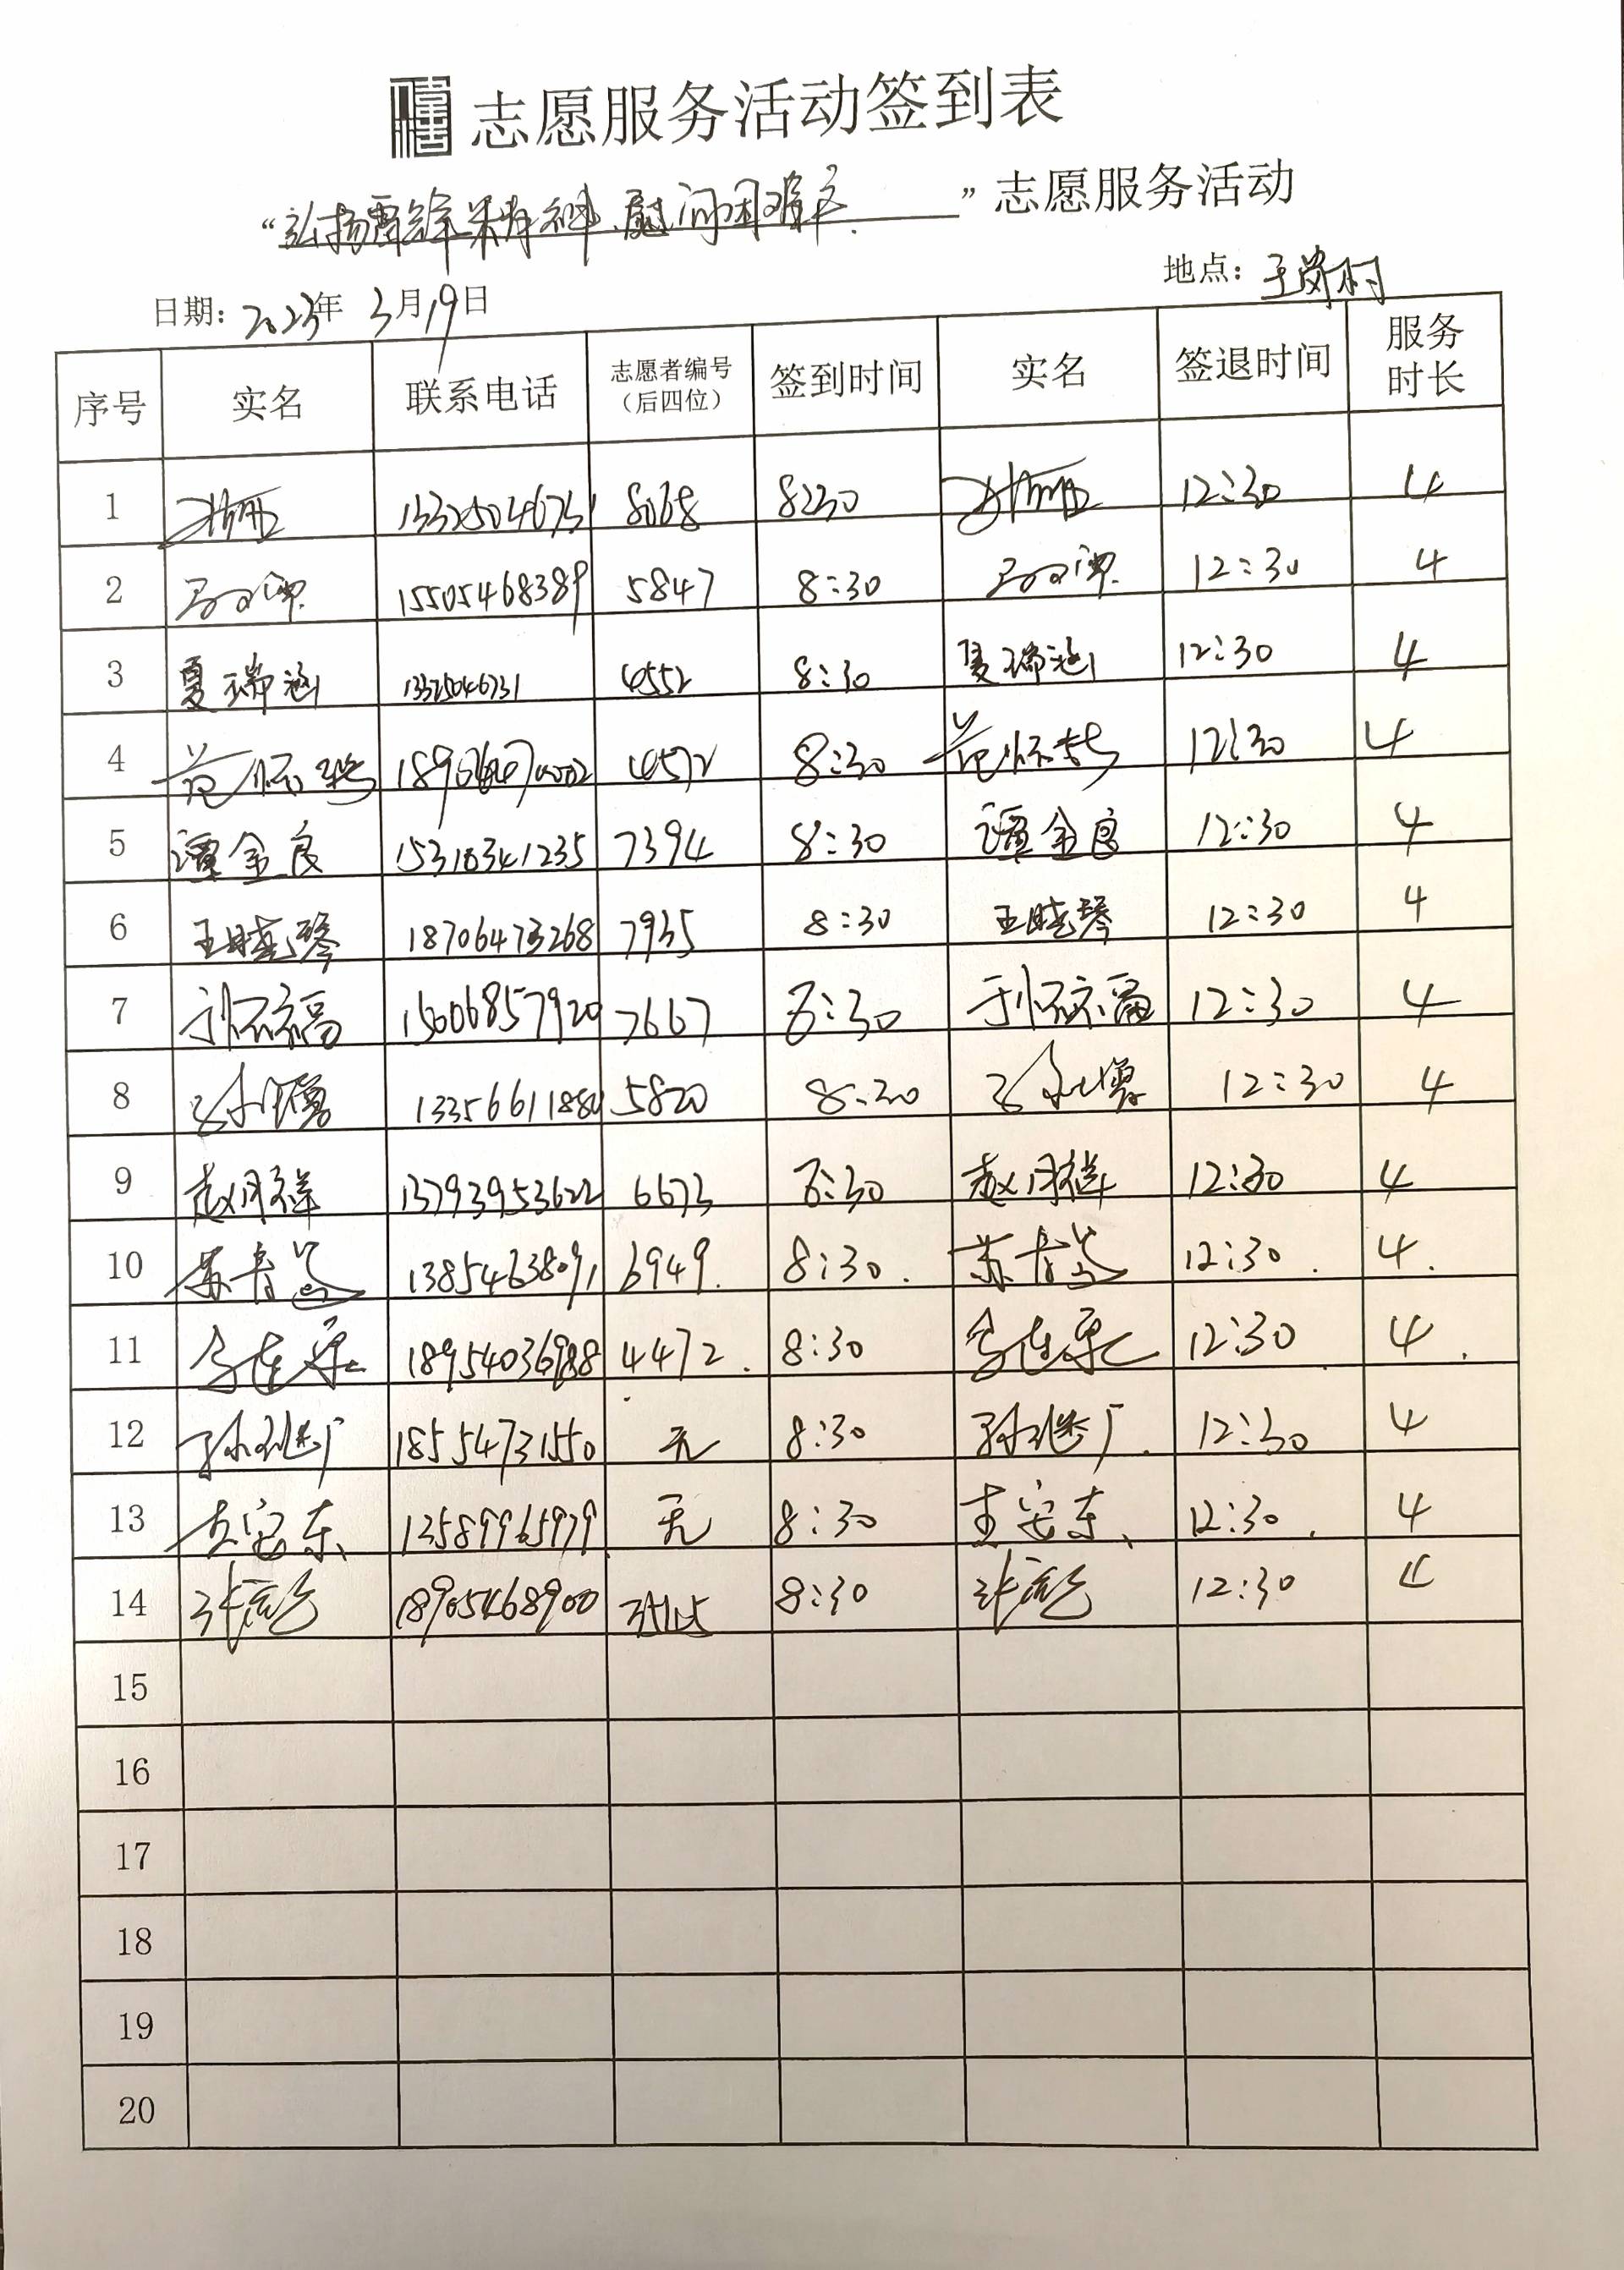 志愿服务活动签到表
“弘扬雷锋精神、慰问困难户”志愿服务活动
日期：2023年3月19日 地点：王岗村
序号 实名 联系电话 志愿者编号（后四位） 签到时间 实名 签退时间 服务时长
1 8068 8:30 12:30 4
2 15505468389 5847 8:30 12:30 4
3 夏瑞涵 13325046731 4552 8:30 夏瑞涵 12:30 4
4 4572 8:30 12:30 4
5 谭金良 15310341235 7394 8:30 谭金良 12:30 4
6 王晓琴 18706473268 7935 8:30 王晓琴 12:30 4
7 15006857920 7667 8:30 12:30 4
8 5820 8:30 12:30 4
9 赵月祥 13793953622 6673 8:30 赵月祥 12:30 4
10 13854638091 6949 8:30 12:30 4
11 18954036988 4472 8:30 12:30 4
12 孙继广 18554731550 无 8:30 孙继广 12:30 4
13 13589965979 无 8:30 12:30 4
14 18905468900 8:30 12:30 4
15
16
17
18
19
20